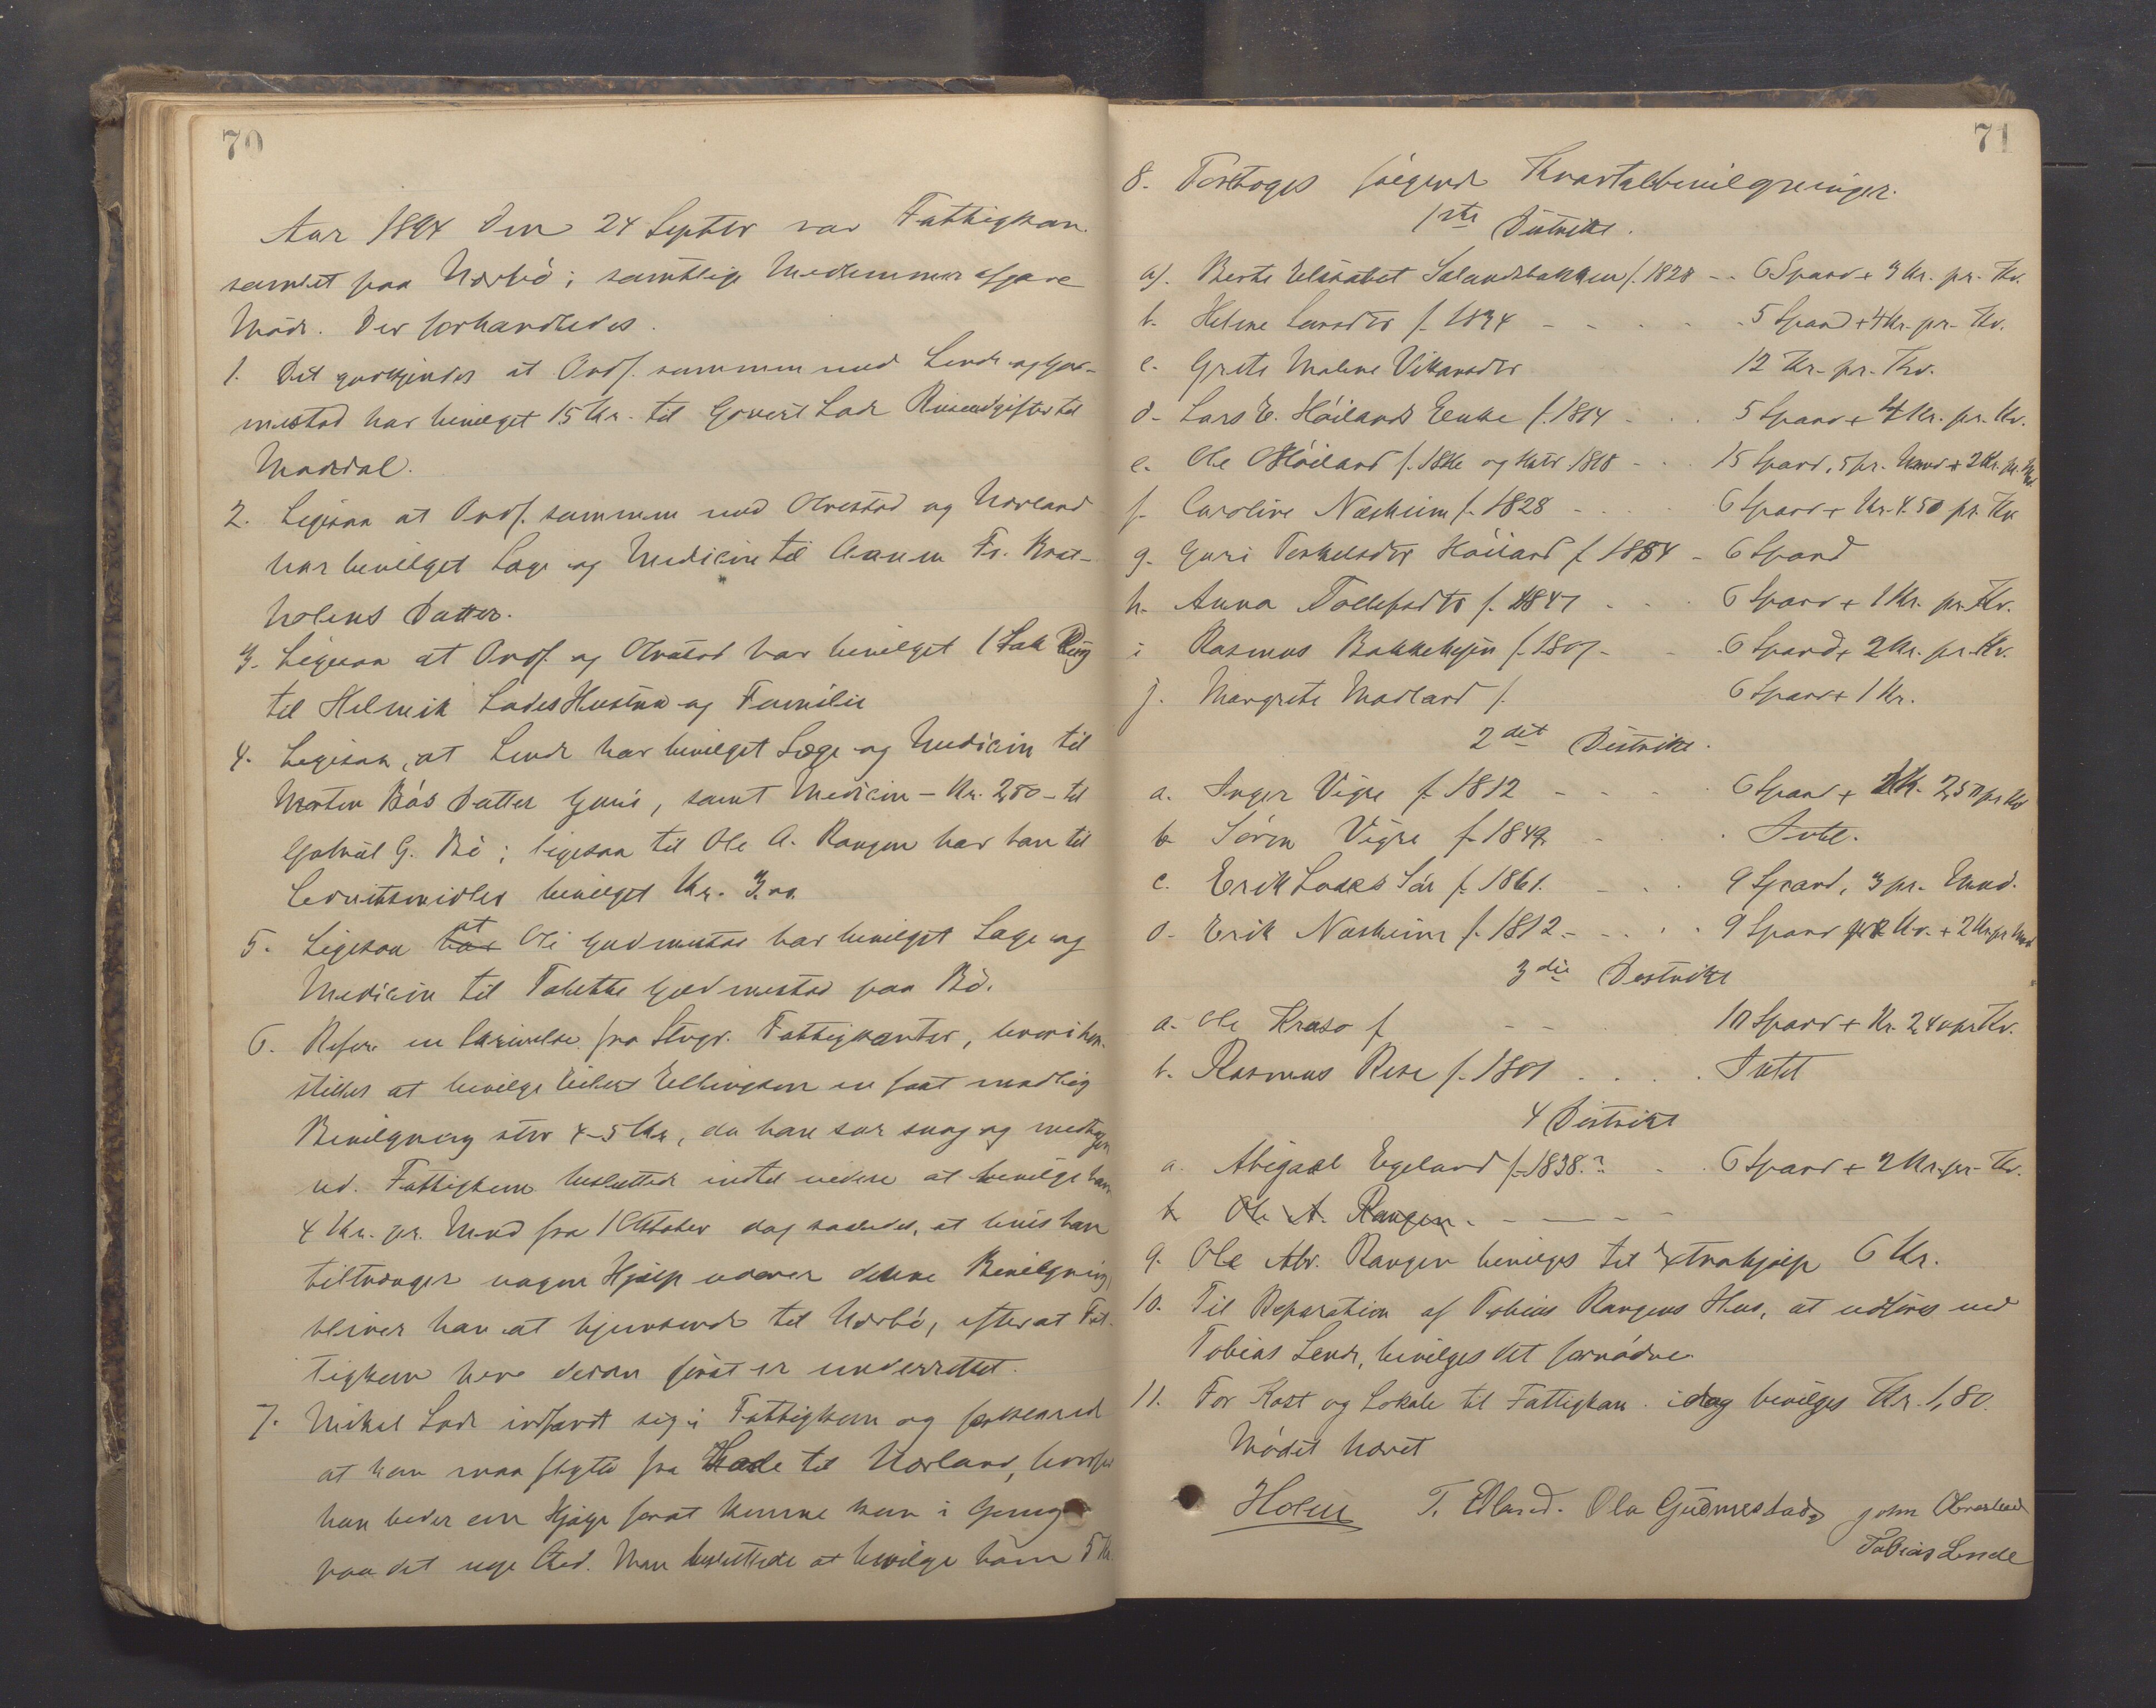 70
Aar 1894 den 24 Septbr var Fattigkom.
samlet paa Nærbö; samtlige Medlemmer afgave
Möde. Der forhandledes.
1. Det godkjendes at Ordf. sammen med Lende og Gud-
mestad har bevilget 15 Kr. til Govert Lode Reiseudgifter til
Maddal.
2. Ligesaa at Ordf. sammen med Obrestad og Norland
har bevilget Læge og Medicin til Fr. Brat-
holens Datter.
3. Ligesaa at Ordf. og Obrestad har bevilget 1 Sæk Rug
til Helmik Lodes Hustru og Familie
4. Ligesaa, at Lende har bevilget Læge og Medicin til
Morten Bös Datter Guri, samt Medicin - Kr. 2,50 - til
G. Bö; ligesaa til Ole A. Rangen har han til
Levnetsmidler bevilget Kr. 3,00.
5. Ligesaa har at Ole Gudmestad har bevilget Læge og
Medicin til Tobette Gudmestad paa Bö.
6. Refer. en Skrivelse fra Stvgr. Fattigkontor, hvori hen-
stilles at bevilge Eilert Ellingsen en fast maadlig
Bevilgning stor 4-5 Kr, da han var svag og medtagen
ud. Fattigkom besluttede indtil videre at bevilge ham
4 Kr. pr. Mnd fra 1 Oktober dog saaledes, at hvis han
tiltrænger nogen Hjælp udover denne Bevilgning,
bliver han at hjemsende til Nærbö, efter at Fat-
tigkom herom først er underrettet.
7. Mikal Lode indfandt sig i Fattigkom og forklarede
at han maa flytte fra Hade til Norland, hvorfor
han beder om Hjælp forat kunne komme i Gang
paa det nye Sted. Man besluttede at bevilge ham 5 Kr.
71
8. Foretoges fölgende Kvartalbevilgninger.
1ste Distrikt.
a). Berte Elisabet Salandsbakken f. 1828 - - 6 Spand + 3 Kr. pr. Kv.
b. Helene Larsdtr f. 1834 - - - - 5 Spand + 4 Kr. pr. Kv.
c. Grete Malene Vikarsdtr 12 Kr. pr. Kv.
d. Lars E. Höilands Enke f. 1814 - - 5 Spand + 4 Kr. pr. Kv.
e. Ole Höiland f. og 1818 - - 15 Spand, 5 pr. Mnd + 2 Kr. pr. Md
f. Caroline Næsheim f. 1828 - - - 6 Spand + Kr. 4.50 pr. Kv
g. Guri Torkelsdtr Höiland f. 1834 - 6 Spand
h. Anna Tollefsdtr f. 1847 - - - 6 Spand + 1 Kr. pr. Kv.
i Rasmus Bakkehejen f. 1807 - - 6 Spand + 2 Kr. pr. Kv.
j. Margrete Madland f. 6 Spand + 1 Kr.
2det Distrikt.
a. Inger Vigre f. 1812 - - - - 6 Spand + Kr. 2,50 pr Kv
b Sören Vigre f. 1849 - - Intet.
c. Erik Lodes Sön f. 1861. - - - 9 Spand, 3 pr. Mnd.
d. Erik Næsheim f. 1812 - - - - 9 Spand pr Kv. + 2 Kr pr Mnd
3die Distrikt
a. Ole f - - 10 Spand + Kr. 2,40 pr Kv.
b. Rasmus Rese f. 1801 . . . . Intet
4 Distrikt
a. Abigael Egeland f. 1838.? - - 6 Spand + 2 Kr. pr. Kv.
b Ole A. Rangen. - - - -
9. Ole Abr. Rangen bevilges til Extrahjælp 6 Kr.
10. Til Reparation af Tobias Rangens Hus, at udföres ved
Tobias Lende, bevilges det fornödne.
11. For Kost og Lokale til Fattigkom. idag bevilges Kr. 1,80.
Mödet hævet
Holm T. Edland. Ola Gudmestad, John Obrestad
Tobias Lende